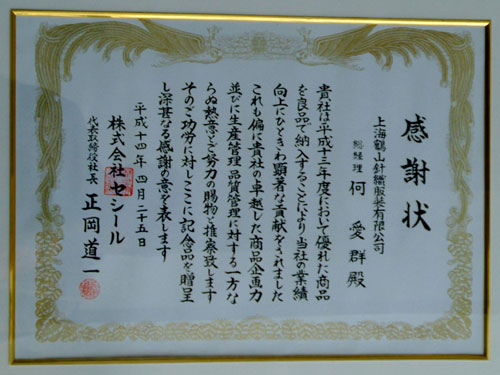 感謝状
上海鶴山針織服装有限公司
総経理 何愛群殿
貴社は平成十三年度において優れた商品
を良品で納入することにより当社の業績
向上にひときわ顕著な貢献をされました
これも偏に貴社の卓越した商品企画力
並びに生産管理品質管理に対する一方な
らぬ熱意とご努力の賜物と推察致します
そのご功労に対しここに記念品を贈呈
し深甚なる感謝の意を表します
平成十四年四月二十五日
株式会社セシール
代表取締役社長 正岡道一